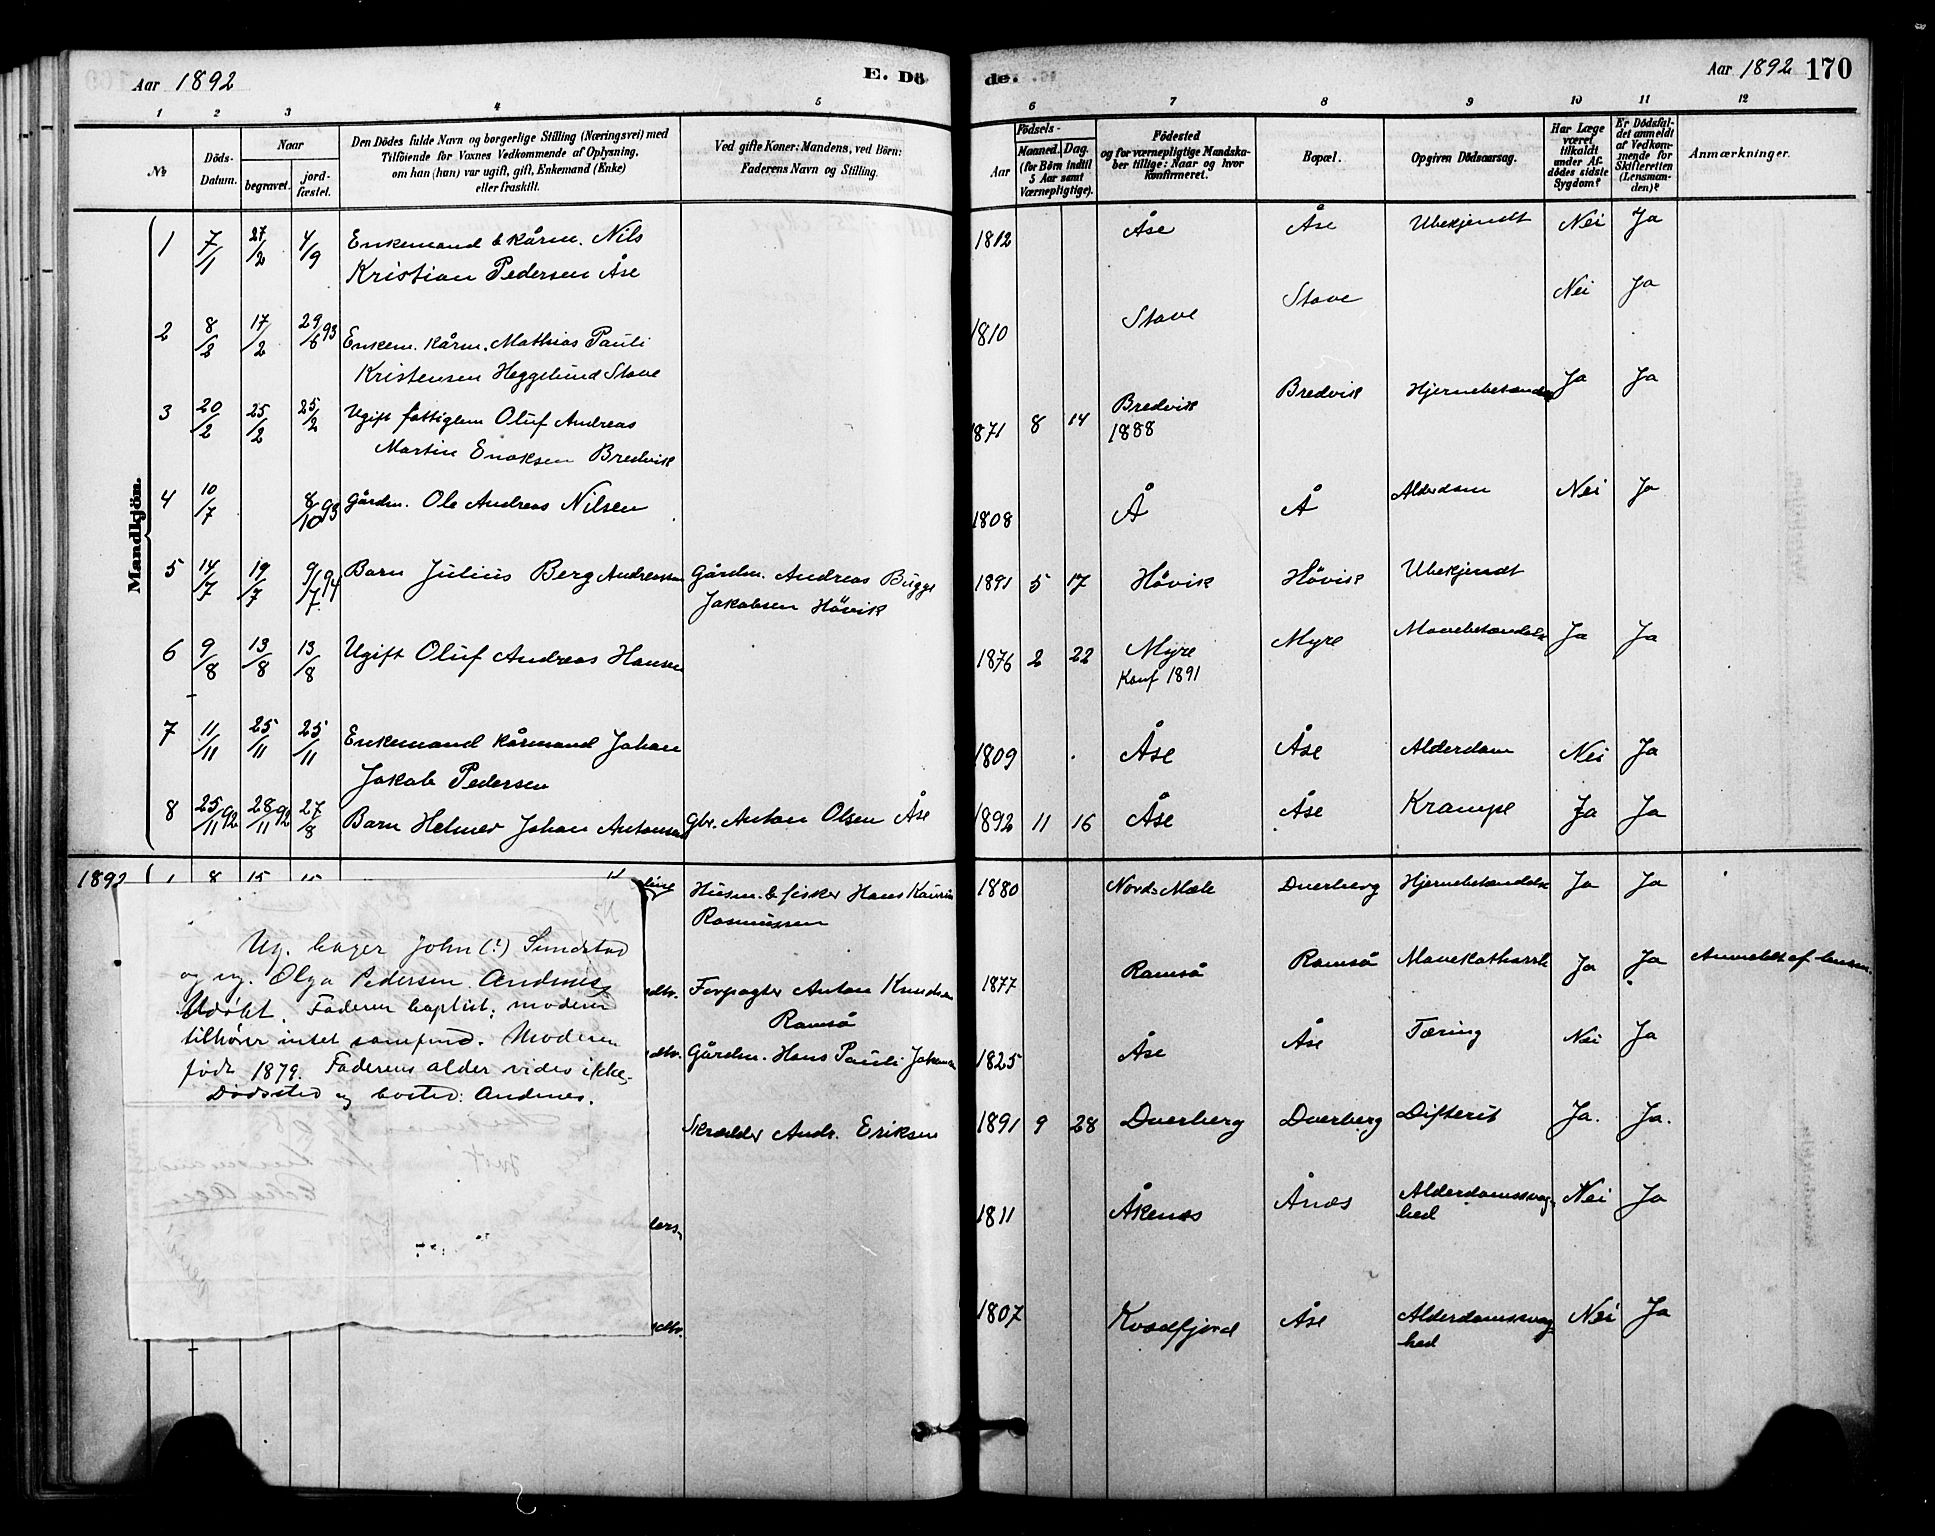 Aar 1892
E. Dö
de.
Aar 1892 170
1 2 3 4 5 6 7 8 9 10 11 12
No
Döds-
Datum.
Naar
begravet.
jord-
fæstet.
Den Dödes fulde Navn og borgerlige Stilling (Næringsvei) med
Tilföiende for Voxnes Vedkommende af Oplysning,
om han (hun) var ugift, gift, Enkemand (Enke)
eller fraskilt.
Ved gifte Koner: Mandens, ved Börn:
Faderens Navn og Stilling.
Födsels-
Aar
Maaned. Dag.
(for Börn indtil
5 Aar samt
Værnepligtige).
Födested
og for værnepligtige Mandska-
ber tillige: Naar og hvor
konfirmeret.
Bopæl.
Opgiven Dödsaarsag.
Har Læge
været
tilkaldt
under Af-
dödes sidste
Sygdom?
Er Dödsfal-
det anmeldt
af Vedkom-
mende for
Skifteretten
(Lensman-
den)?
Anmærkninger.
Mandkjön.
1 7/1 27/2 4/9 Enkemand & kårm. Nils
Kristian Pedersen Åse
1812 Åse Åse Ubekjendt Nei Ja
2 8/2 17/2 29/6 93 Enkem. kårm. Mathias Pauli
Kristensen Heggelund Stave
1810 Stave Stave Nei Ja
3 20/2 25/2 25/2 Ugift fattiglem Oluf Andreas
Martin Enoksen Bredvik
1871 8 14 Bredvik Bredvik Ja Ja
1888
4 10/7 8/10 93 Gårdm. Ole Andreas Nilsen
1808 Å Å Alderdom Nei Ja
5 14/7 19/7 9/7 94 Barn Julius Berg Andreassen Gårdm. Andreas Bugge
Jakobsen Hövik
1891 5 17 Håvik Håvik Ubekjendt
6 9/8 13/8 13/8 Ugift Oluf Andreas Hansen
1876 2 22 Myre Myre Mavebetændelse Ja Ja
Konf 1891
7 11/11 25/11 25/11 Enkemand kårmand Johan
Jakob Pedersen
1809 Åse Åse Alderdom Nei Ja
8 25/11 92 28/11 92 27/8 Barn Helmer Johan Antonsen Gbr. Anton Olsen Åse
1892 11 16 Åse Åse Krampe Ja Ja
1892 1 8 15 15
Husm. & fisker Hans Kaurin
Rasmussen
1880 Nord-Mæle Dverberg Hjernebetændelse Ja Ja
Forpagter Anton Knudsen
Ramså
1877 Ramså Ramså Mavekatharrh Ja Ja Anmeldt af lensm.
Gårdm. Hans Pauli Johans
1825 Åse Åse Tæring Nei Ja
Skrædder Andr. Eriksen
1891 9 28 Dverberg Dverberg Difterit Ja. Ja.
1811 Åkenes Ånes Alderdomssvag
hed Nei Ja
1807 Kvædfjord Åse Alderdomssvag
hed Nei Ja
Ug. bager John (?) Sundstad
og ug. Olga Pedersen Andenes
Udøbt. Faderen baptist; moderen
tilhører intet samfund. Moderen
født 1879. Faderens alder vides ikke.
Dødssted og bosted: Andenes.